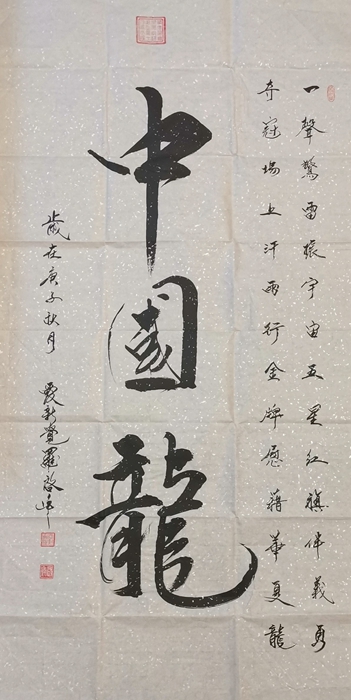 一聲驚雷振宇宙五星紅旗伴義勇
奪冠場上汗雨行金牌慰藉華夏龍
中國龍
歲在庚子秋月
愛新覺羅啟